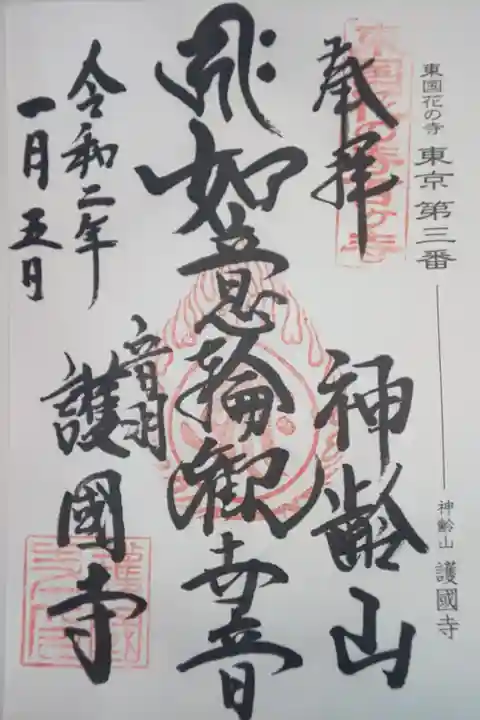 東国花の寺 東京 第三番 神齢山 護國寺
奉拝
神齢山
如意輪観世音
令和二年
一月五日
音羽
護國寺
東国花の寺百ヶ寺